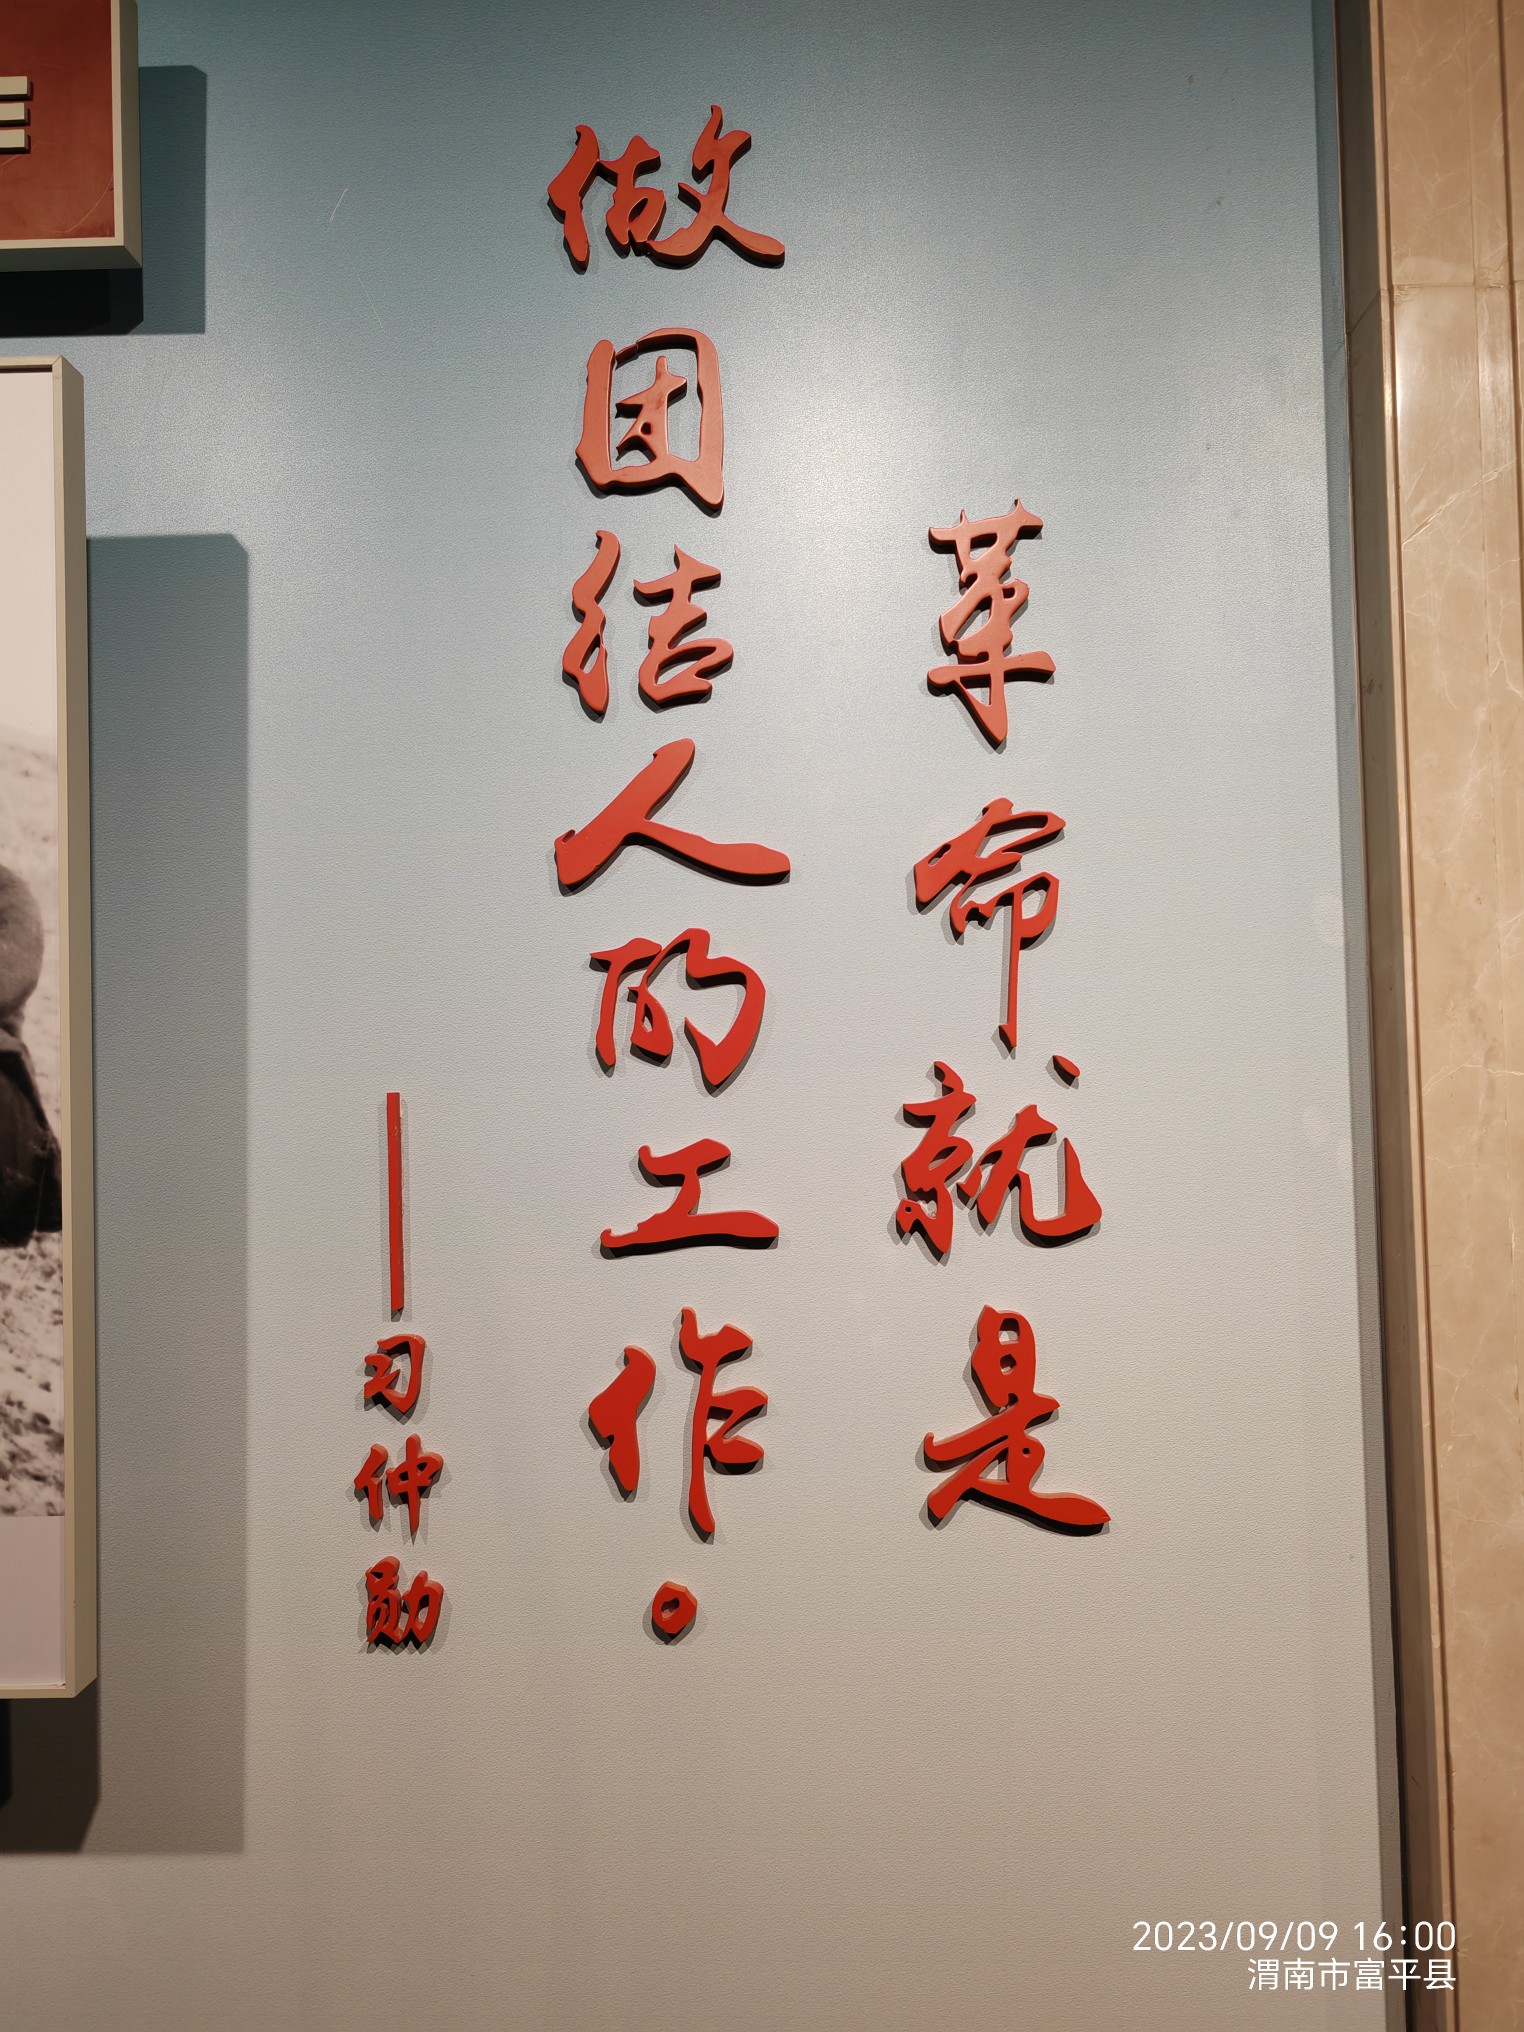 革命就是
做团结人的工作。
——习仲勋
2023/09/09 16:00
渭南市富平县